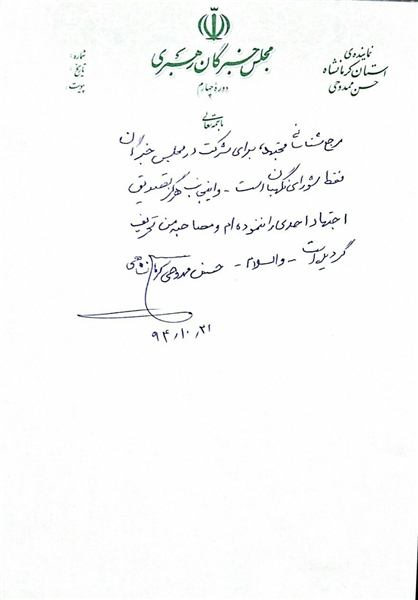 نماینده‌ی
استان کرمانشاه
حسن ممدوحی
مجلس خبرگان رهبری
دورهٔ چهارم
شماره:
تاریخ:
پیوست:
باسمه تعالی
مرجع شناسائی مجتهد، برای شرکت در مجلس خبرگان
فقط شورای نگهبان است - و اینجانب هرگز تصدیق
اجتهاد احمدی را ننموده ام و مصاحبه من تحریف
گردیده است - والسلام - حسن ممدوحی کرمانشاهی
۹۴٫۱۰٫۲۱